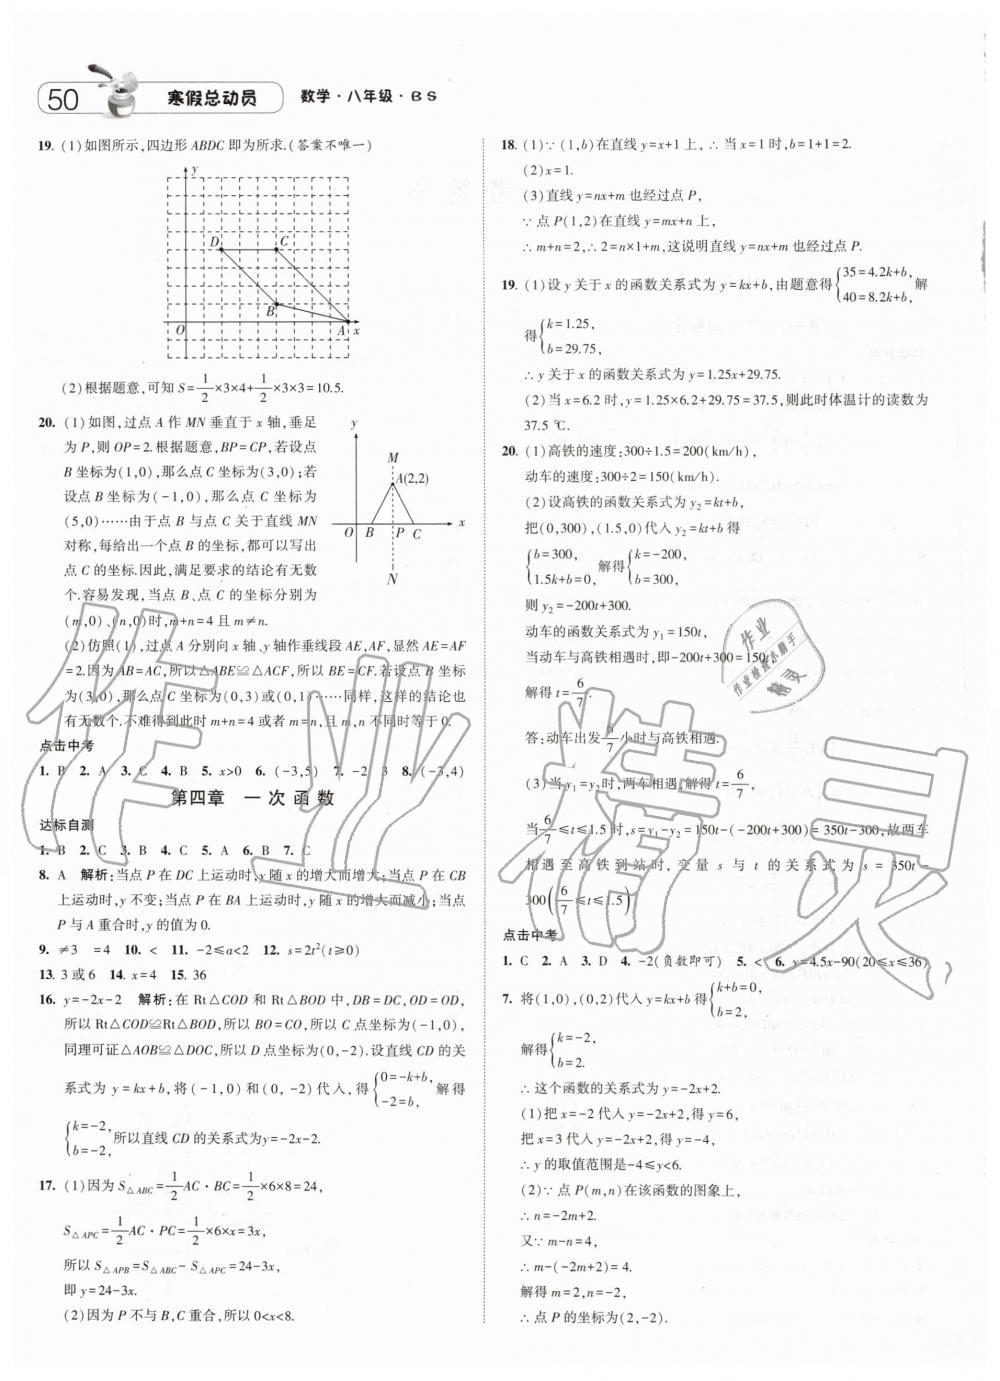 50 寒假总动员 数学·八年级·BS
19. (1)如图所示,四边形ABDC即为所求.(答案不唯一)
y
D C
B
O A x
(2)根据题意,可知S=1/2×3×4+1/2×3×3=10.5.
20. (1)如图,过点A作MN垂直于x轴,垂足
为P,则OP=2.根据题意,BP=CP,若设点
B坐标为(1,0),那么点C坐标为(3,0);若
设点B坐标为(-1,0),那么点C坐标为
(5,0)……由于点B与点C关于直线MN
对称,每给出一个点B的坐标,都可以写出
点C的坐标.因此,满足要求的结论有无数
个.容易发现,当点B、点C的坐标分别为
(m,0)、(n,0)时,m+n=4且m≠n.
y
M
A(2,2)
O B P C x
N
(2)仿照(1),过点A分别向x轴、y轴作垂线段AE,AF,显然AE=AF
=2.因为AB=AC,所以△ABE≌△ACF,所以BE=CF.若设点B坐标
为(3,0),那么点C坐标为(0,3)或(0,1)……同样,这样的结论也
有无数个.不难得到此时m+n=4或者m=n,且m,n不同时等于0.
点击中考
1. B 2. A 3. C 4. B 5. x>0 6. (-3,5) 7. -2 3 8. (-3,4)
第四章 一次函数
达标自测
1. B 2. C 3. B 4. C 5. A 6. B 7. C
8. A 解析:当点P在DC上运动时,y随x的增大而增大;当点P在CB
上运动时,y不变;当点P在BA上运动时,y随x的增大而减小;当点
P与A重合时,y的值为0.
9. ≠3 =4 10. < 11. -2≤a<2 12. s=2t²(t≥0)
13. 3或6 14. x=4 15. 36
16. y=-2x-2 解析:在Rt△COD和Rt△BOD中,DB=DC,OD=OD,
所以Rt△COD≌Rt△BOD,所以BO=CO,所以C点坐标为(-1,0),
同理可证△AOB≌△DOC,所以D点坐标为(0,-2).设直线CD的关
系式为y=kx+b,将(-1,0)和(0,-2)代入,得{0=-k+b, -2=b, 解得
{k=-2, b=-2, 所以直线CD的关系式为y=-2x-2.
17. (1)因为S△ABC=1/2AC·BC=1/2×6×8=24,
S△APC=1/2AC·PC=1/2×6×x=3x,
所以S△APB=S△ABC-S△APC=24-3x,
即y=24-3x.
(2)因为P不与B,C重合,所以0<x<8.
18. (1)∵(1,b)在直线y=x+1上,∴当x=1时,b=1+1=2.
(2)x=1.
(3)直线y=nx+m也经过点P,
∵点P(1,2)在直线y=mx+n上,
∴m+n=2,∴2=n×1+m,这说明直线y=nx+m也经过点P.
19. (1)设y关于x的函数关系式为y=kx+b,由题意得{35=4.2k+b, 40=8.2k+b, 解
得{k=1.25, b=29.75,
∴y关于x的函数关系式为y=1.25x+29.75.
(2)当x=6.2时,y=1.25×6.2+29.75=37.5,则此时体温计的读数为
37.5 ℃.
20. (1)高铁的速度:300÷1.5=200(km/h),
动车的速度:300÷2=150(km/h).
(2)设高铁的函数关系式为y₂=kt+b,
把(0,300),(1.5,0)代入y₂=kt+b得
{b=300, 1.5k+b=0, 解得{k=-200, b=300,
则y₂=-200t+300.
动车的函数关系式为y₁=150t,
当动车与高铁相遇时,即-200t+300=150t,
解得t=6/7.
答:动车出发6/7小时与高铁相遇.
(3)当y₁=y₂时,两车相遇,解得t=6/7,
当6/7≤t≤1.5时,s=y₁-y₂=150t-(-200t+300)=350t-300,故两车
相遇至高铁到站时,变量s与t的关系式为s=350t-
300(6/7≤t≤1.5).
点击中考
1. C 2. A 3. D 4. -2(负数即可) 5. < 6. y=4.5x-90(20≤x≤36)
7. 将(1,0),(0,2)代入y=kx+b得{k+b=0, b=2,
解得{k=-2, b=2.
∴这个函数的关系式为y=-2x+2.
(1)把x=-2代入y=-2x+2,得y=6,
把x=3代入y=-2x+2,得y=-4,
∴y的取值范围是-4≤y<6.
(2)∵点P(m,n)在该函数的图象上,
∴n=-2m+2.
又∵m-n=4,
∴m-(-2m+2)=4.
解得m=2,n=-2,
∴点P的坐标为(2,-2).
作业精灵
作业
作业检查小助手
精灵